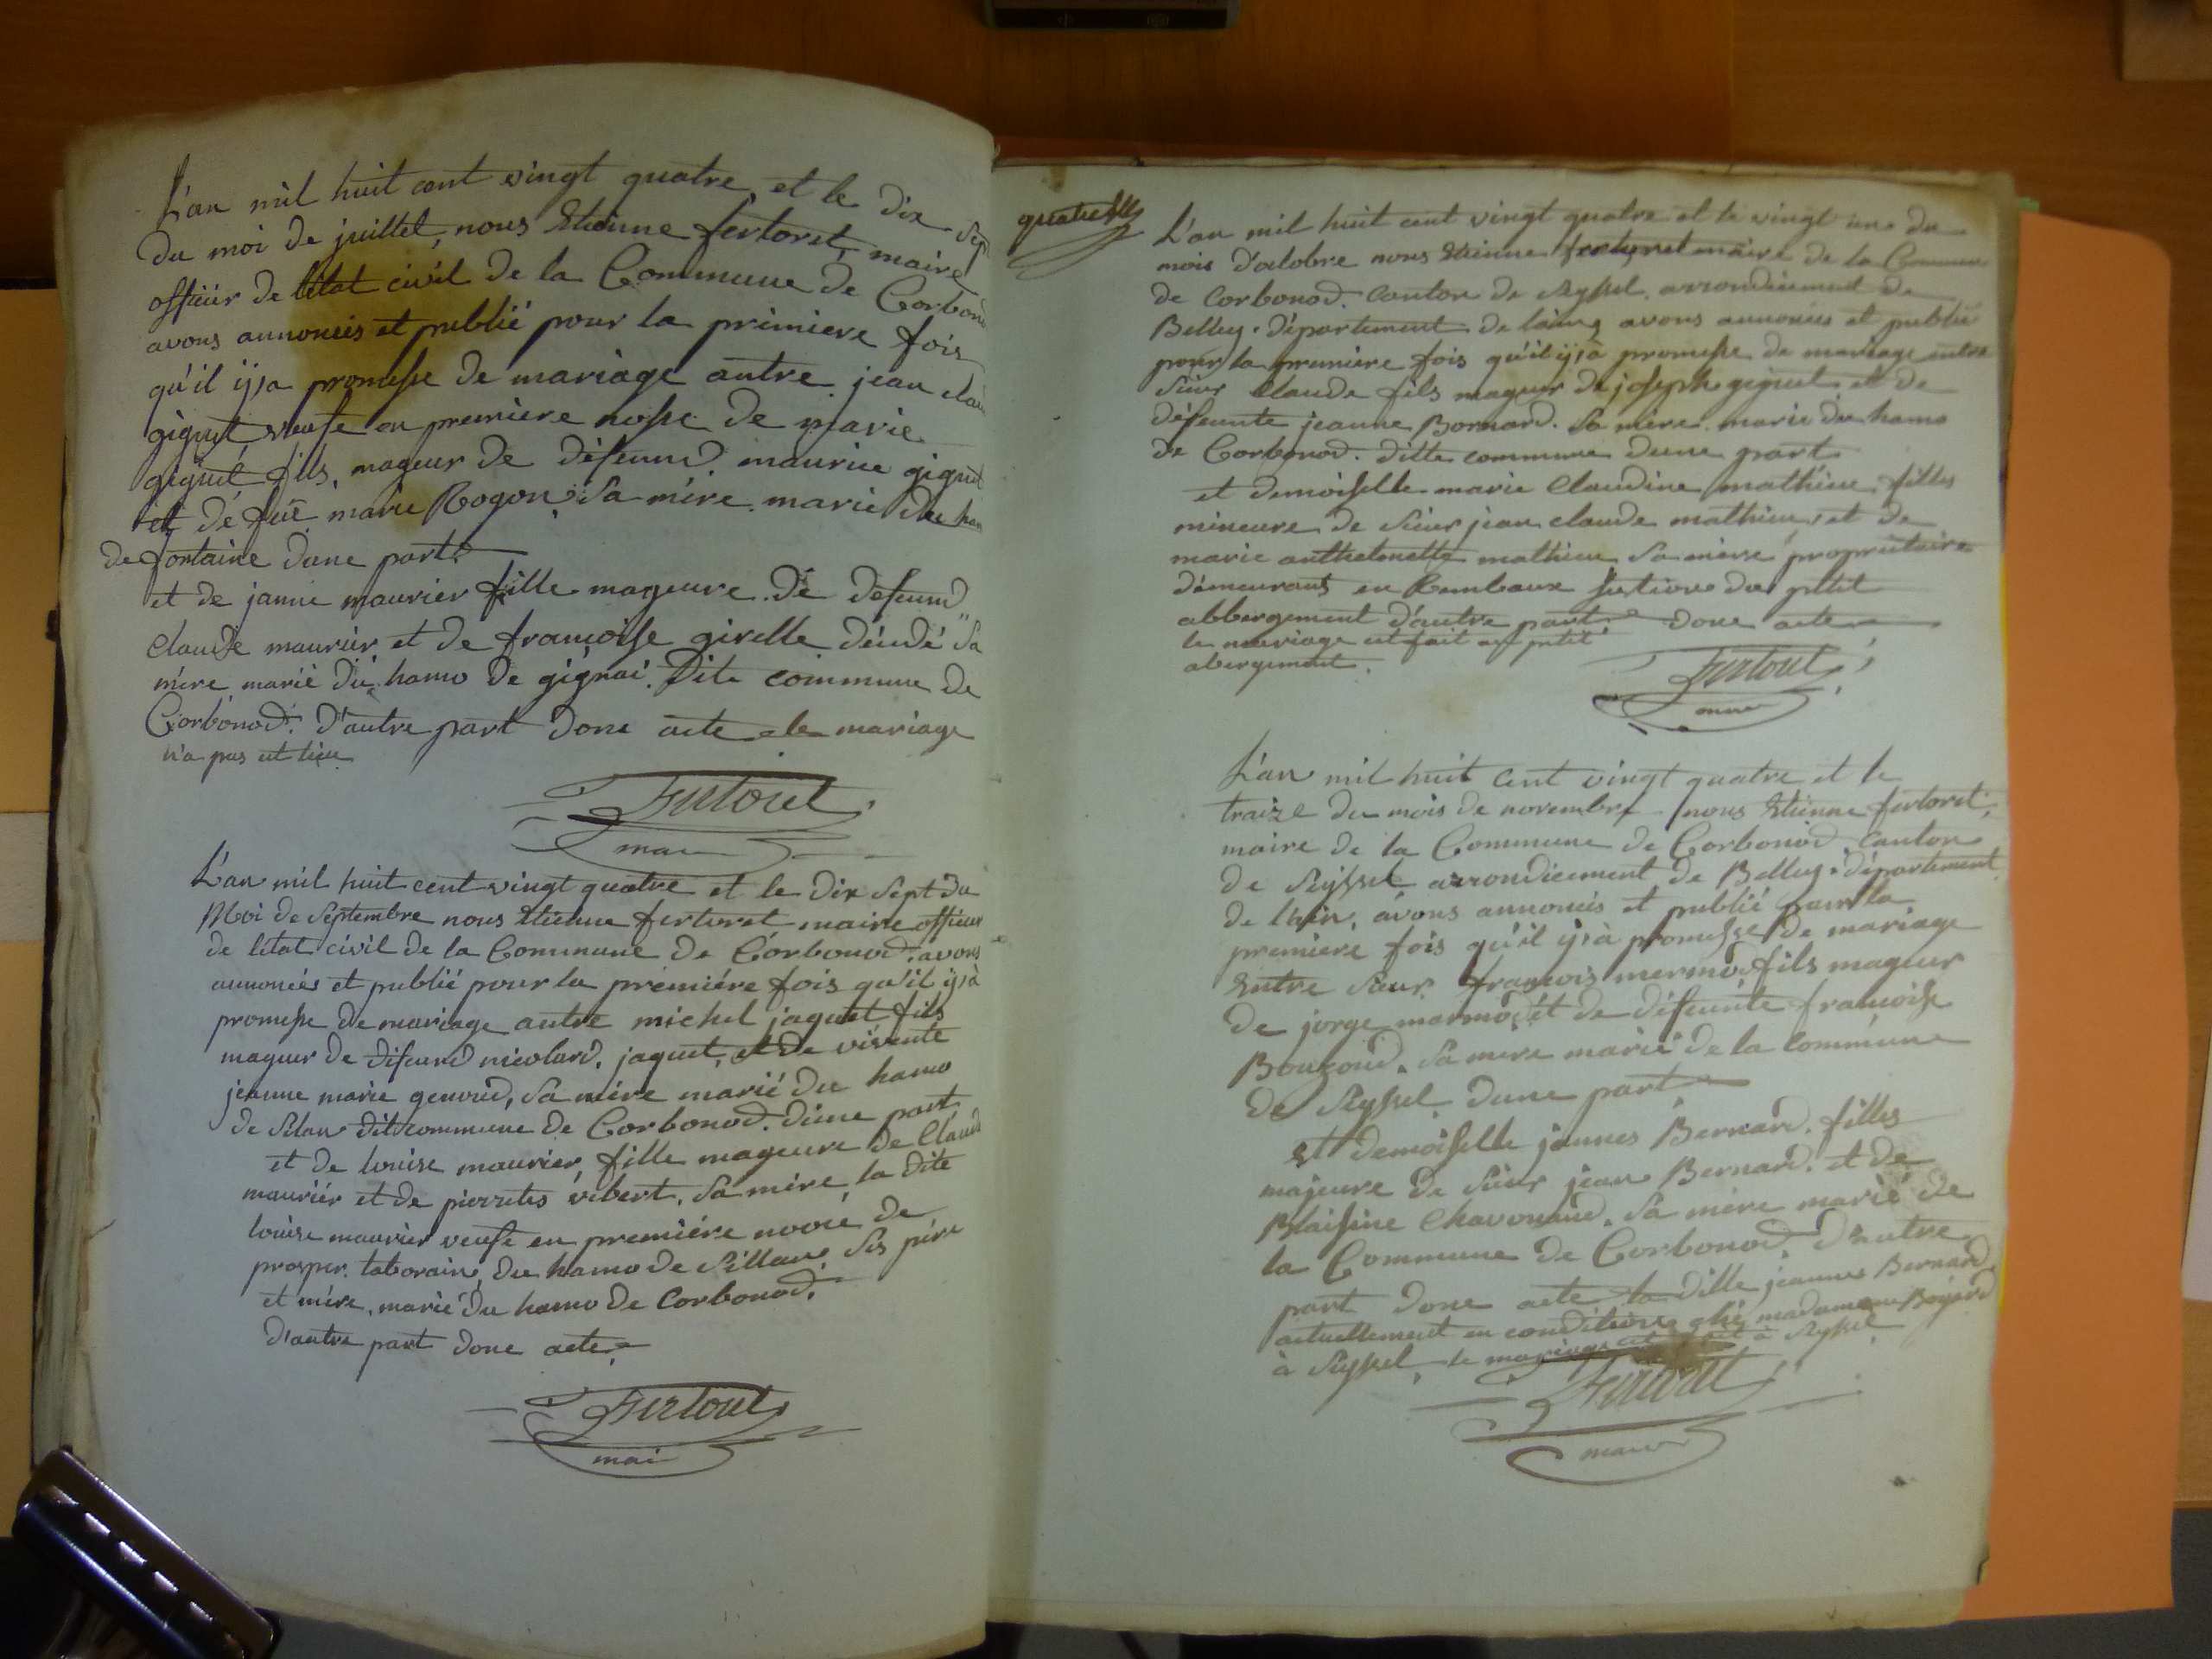 L'an mil huit cent vingt quatre, et le dix sep
du moi de juillet, nous Etiénne fertoret, maire
officiér de létat civil de la Commune de Corbono
avons annoncés et publié pour la primiere fois
qu'il ÿ, a promesse de mariage autre jean clau
giguet veufe en premiere nosse de marie
giguet fils, mageur de défeund. maurice giguet
et dé fue marie Rogon, sa mére. marie du ham
de fontaine dune part.
et de jannie maurier fille mageure. dé défeund
Claude mauriér et de françoise girelle déndé sa
mére marié du hamo de gignai. Dite commune de
Corbonod. D'autre part Donc acte le mariage
n'a pas ut lieu
Fertoret
mai
L'an mil huit cent vingt quatre et le dix sept du
Moi de Septembre nous Etienne fertoret maire officier
de létat civil de la Commune de Corbonod. avons
annoncés et publié pour la premiére fois qu'il ÿ, à
promesse de mariage autre michel jaquet fils
mageur de difeund nicolard. jaquet, et de vivente
jeanne marie genoud, sa mére marié du hamo
de silan dit commune de Corbonod. dune part
et de louise maurier, fille mageure de Claud
mauriér et de pierretes vibert. sa mére, la dite
louise maurier veufe en premiére noce de
prosper. taborain, du hamo de Sillan. Ses pére
et mére, marié du hamo de Corbonod.
d'autre part donc acte.
Fertoret
mai
L'an mil huit cent vingt quatre et le vingt une du
mois d'octobre nous Etienne fertoret maire de la Commune
de Corbonod. Canton de Seyssel. arrondicement de
Belley. département de l'aing avons annoncés et publié
pour la premiere fois qu'il ÿ, à promesse de mariage entre
Sieur Claude fils mageur de joseph giguet et de
défeunte jeanne Bornard. Sa mére. marié du hamo
de Corbonod. ditte commune dune part
et demoiselle marie Claudine mathieu filles
mineure de Sieur jean claude mathieu, et de
marie anthelmette mathieu sa mére propriétaire
démeurant en sutions du petit
abbergement d'autre part donc acte
le mariage ut fait au petit
abergement.
Fertoret
maire
L'an mil huit cent vingt quatre et le
traize du mois de novembre nous Etiénne fertoret,
maire de la Commune de Corbonod. Canton
de Seyssel arrondicement de Belley. département
de lain, avons annoncés et publié pour la
premiere fois qu'il ÿ, à promesse de mariage
Entre Sieur. françois mermod fils mageur
de jorge marmod et de défeunte françoise
Bouzoud. Sa mere marié de la Commune
de Seyssel. dune part
et demoiselle jannes Bernard. filles
majeure de Sieur jean Bernard. et de
Blaisine Chavonand. Sa mére marié de
la Commune de Corbonod. D'autre
part Donc acte la Ditte jeanne Bernard
actuellement en condition ché madame Boyard
à Seyssel, le mariage à Seyssel
Fertoret
maire